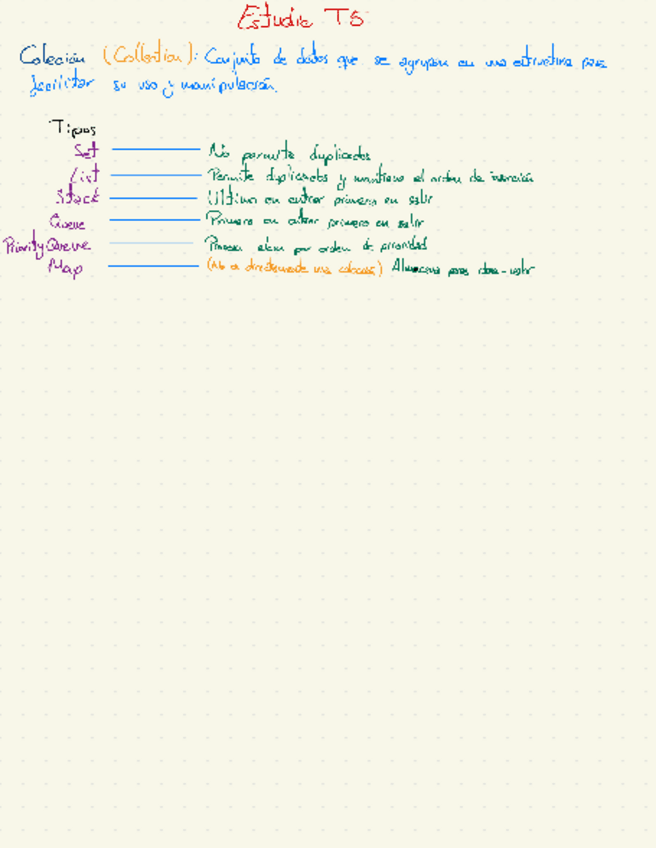 Estudio TS
Colección (Collection): Conjunto de datos que se agrupan en una estructura para
facilitar su uso y manipulación.
Tipos
Set No permite duplicados
List Permite duplicados y mantiene el orden de inserción
Stack Último en entrar primero en salir
Queue Primero en entrar primero en salir
PriorityQueue Procesa elem por orden de prioridad
Map (No es directamente una colección) Almacena pares clave-valor